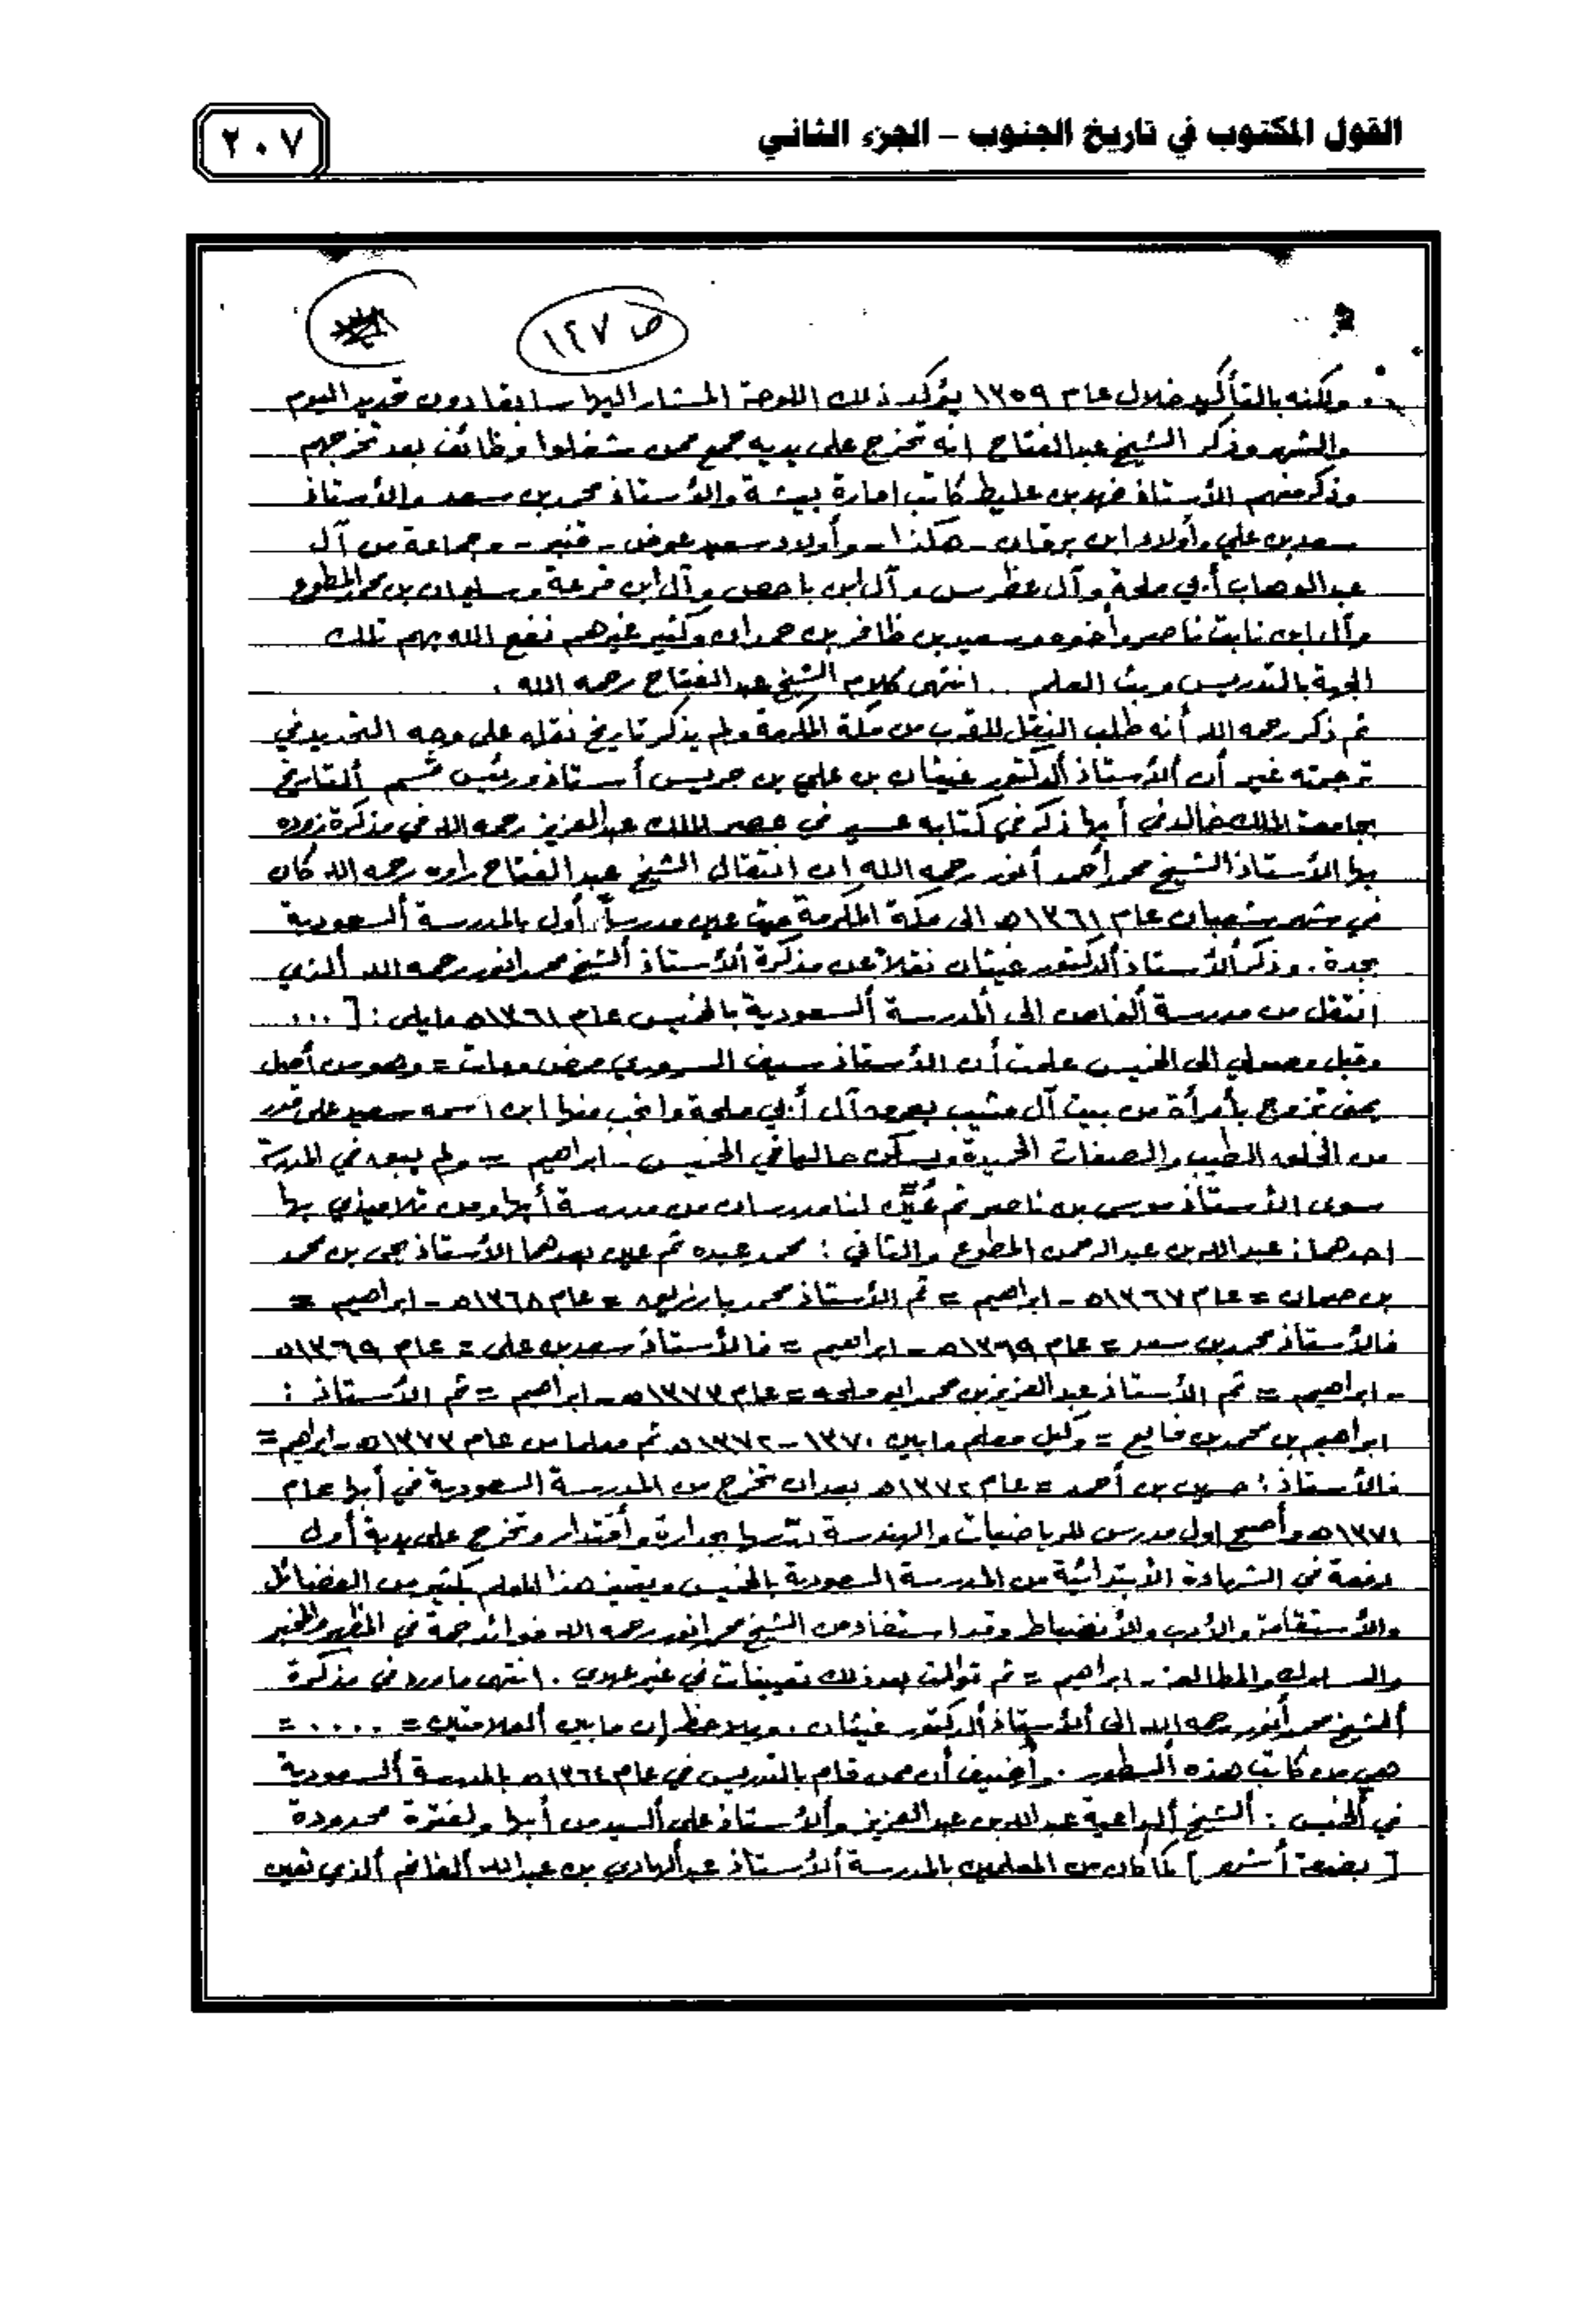 القول المكتوب في تاريخ الجنوب – الجزء الثاني
٢٠٧
ص ١٢٧
ولكنه بالتأكيد خلال عام ١٣٥٩ يؤكد ذلك اللوحة المشار اليها سابقا دون تحديد اليوم
والشهر وذكر الشيخ عبدالفتاح انه تخرج على يديه جمع ممن شغلوا وظائف بعد تخرجهم
وذكر منهم الأستاذ فهد بن عليط كاتب امارة بيشة والأستاذ محمد بن سعد والأستاذ
سعد بن علي وأولاد ابن برقان - هكذا - وأولاد سعيد عوض - قنبر - وجماعة من آل
عبدالوهاب أبي ملحة وآل عطرس وآل ابن باحص وآل ابن قرعة وسليمان بن محمد المطوع
وآل ابن نابت ناصر وأخوه وسعيد بن ظافر بن حمدان وكثير غيرهم نفع الله بهم تلك
الجهة بالتدريس وبث العلم .. انتهى كلام الشيخ عبدالفتاح رحمه الله .
ثم ذكر رحمه الله أنه طلب النقل للقرب من مكة المكرمة ولم يذكر تاريخ نقله على وجه التحديد في
ترجمته غير أن الأستاذ الدكتور غيثان بن علي بن جريس أستاذ ورئيس قسم التاريخ
بجامعة الملك خالد في أبها ذكر في كتابه عسير في عصر الملك عبدالعزيز رحمه الله في مذكرة زوده
بها الأستاذ الشيخ محمد أحمد أنور رحمه الله ان انتقال الشيخ عبدالفتاح راوه رحمه الله كان
في شهر شعبان عام ١٣٦١هـ الى مكة المكرمة حيث عين مدرساً أول بالمدرسة السعودية
بجدة . وذكر الأستاذ الدكتور غيثان نقلاً عن مذكرة الأستاذ الشيخ محمد انور رحمه الله الذي
انتقل من مدرسة النماص الى المدرسة السعودية بالخميس عام ١٣٦١هـ مايلي : [ ...
وقبل وصولي الى الخميس علمت أن الأستاذ سيف السروري مرض ومات = وهو من أصل
يمني تزوج بأمرأة من بيت آل مشيب بعرو آل أبي ملحة وانجب منها ابن اسمه سعيد على قدر
من الخلق الطيب والصفات الحميدة ويسكن حاليا في الخميس - ابراهيم = ولم يبق في المدرسة
سوى الأستاذ موسى بن ناصر ثم عُيّن لنا مدرسان من مدرسة أبها ومن تلاميذي بها
احدهما : عبدالله بن عبدالرحمن المطوع والثاني : محمد عبده ثم عين بعدهما الأستاذ يحي بن محمد
بن صمان = عام ١٣٦٧هـ - ابراهيم = ثم الأستاذ محمد بارزيق = عام ١٣٦٨هـ - ابراهيم =
فالأستاذ محمد بن سعد = عام ١٣٦٩هـ - ابراهيم = فالأستاذ سعد بن علي = عام ١٣٦٩هـ
- ابراهيم = ثم الأستاذ عبدالعزيز بن محمد ابو ملحه = عام ١٣٧٣هـ - ابراهيم = ثم الأستاذ :
ابراهيم بن محمد بن فايع = وكيل معلم مابين ١٣٧٠-١٣٧٢هـ ثم معلما من عام ١٣٧٣هـ - ابراهيم =
فالأستاذ : حسين بن أحمد = عام ١٣٧٢هـ بعد ان تخرج من المدرسة السعودية في أبها عام
١٣٧١هـ وأصبح اول مدرس للرياضيات والهندسة بجدارة وأقتدار وتخرج على يدية أول
دفعة في الشهادة الأبتدائية من المدرسة السعودية بالخميس ويتميز هذا المعلم بكثير من الفضائل
والأستقامة والأدب والأنضباط وقد استفاد من الشيخ محمد انور رحمه الله فوائد جمة في المظهر والمخبر
والسلوك والمطالعة - ابراهيم = ثم توالت بعد ذلك تعيينات في غير عهدي . انتهى ما ورد في مذكرة
الشيخ محمد أنور رحمه الله الى الأستاذ الدكتور غيثان . ويلاحظ إن مابين العلامتين = .... =
هي من كاتب هذه السطور . وأضيف أن ممن قام بالتدريس في عام ١٣٦٤هـ بالمدرسة السعودية
في الخميس : الشيخ الداعية عبدالله بن عبدالعزيز والأستاذ علي السيد من أبها ولفترة محدودة
[ بضعة أشهر ] كما كان من المعلمين بالمدرسة الأستاذ عبدالهادي بن عبدالله الغانم الذي تعين